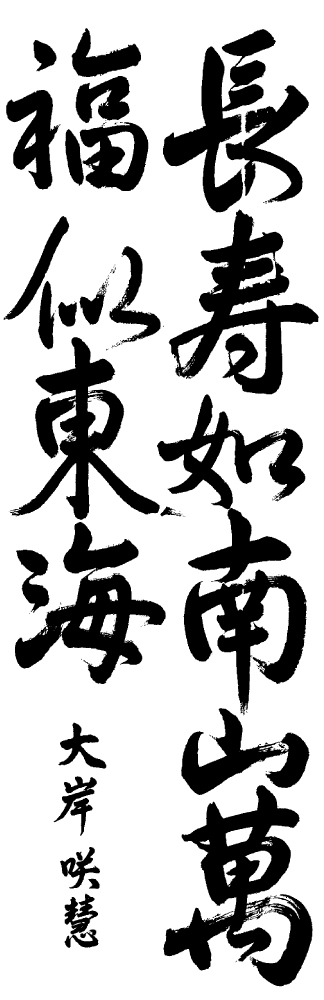 長寿如南山萬
福似東海
大岸咲慧